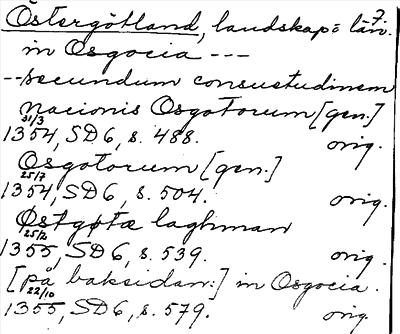 7.
Östergötland, landskap= län.
in Osgocia ---
-- secundum consuetudinem
nacionis Osgotorum [gen.]
31/3
1354, SD 6, s. 488. orig.
Osgotorum [gen.]
25/7
1354, SD 6, s. 504. orig.
Østgøtæ laghman
25/2
1355, SD 6, s. 539. orig.
[på baksidan:] in Osgocia.
22/10
1355, SD 6, s. 579. orig.